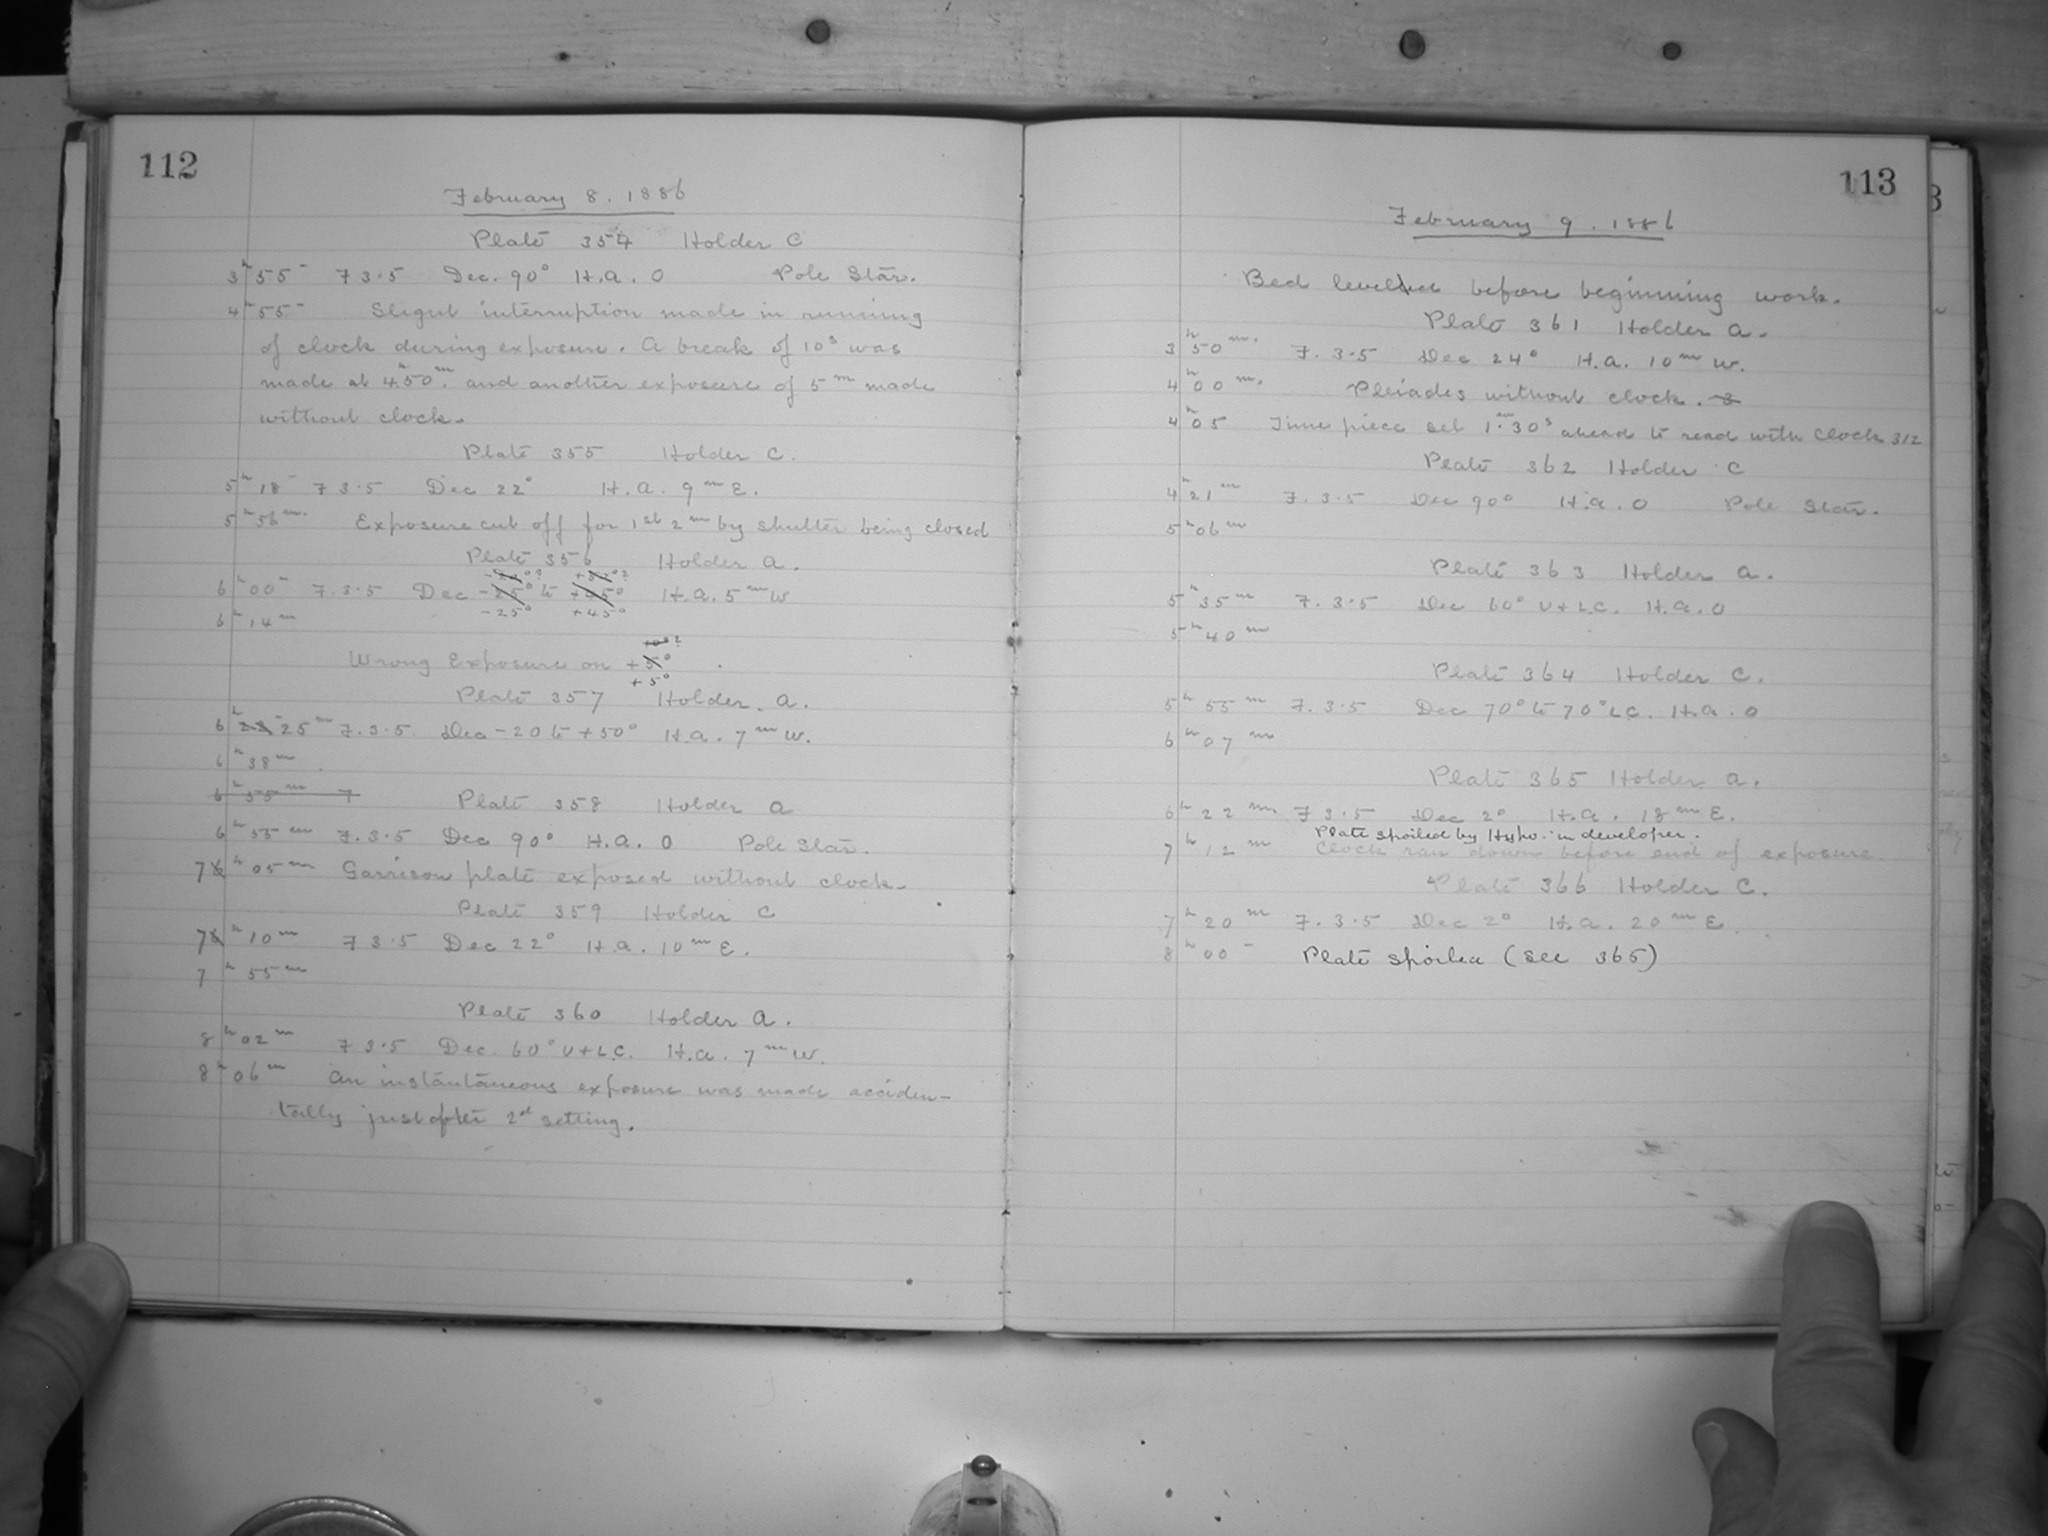 112
February 8. 1886
Plate 354 Holder C
3h 55m F 3.5 Dec. 90° H.A. 0 Pole Star.
4h 55m Slight interruption made in running
of clock during exposure. A break of 10s was
made at 4h 50m. and another exposure of 5m made
without clock.
Plate 355 Holder C.
5h 18m F 3.5 Dec 22° H.A. 9m E.
5h 56m. Exposure cut off for 1st 2m by shutter being closed
Plate 356 Holder A.
6h 00m F. 3.5 Dec -25° to +45° H.A. 5m W
-25° +45°
6h 14m
Wrong Exposure on +5°
+5°
Plate 357 Holder. A.
6h 25m F. 3.5 Dec -20 to +50° H.A. 7m W.
6h 38m
6h 55m F Plate 358 Holder A
6h 55m F. 3.5 Dec 90° H.A. 0 Pole Star.
7h 05m Garrison plate exposed without clock.
Plate 359 Holder C
7h 10m F 3.5 Dec 22° H.A. 10m E.
7h 55m
Plate 360 Holder A.
8h 02m F 3.5 Dec. 60° U+L.C. H.A. 7m W.
8h 06m An instantaneous exposure was made acciden-
tally just after 2d setting.
113
February 9. 1886
Bed levelled before beginning work.
Plate 361 Holder A.
3h 50m. F. 3.5 Dec 24° H.A. 10m W.
4h 00m. Pleiades without clock.
4h 05 Time piece set 1m. 30s ahead to read with Clock 312
Plate 362 Holder C
4h 21m F. 3.5 Dec 90° H.A. 0 Pole Star.
5h 06m
Plate 363 Holder A.
5h 35m F. 3.5 Dec 60° U+L.C. H.A. 0
5h 40m
Plate 364 Holder C.
5h 55m F. 3.5 Dec 70° to 70° L.C. H.A. 0
6h 07m
Plate 365 Holder A.
6h 22m F 3.5 Dec 2° H.A. 18m E.
Plate spoiled by Hypo. in developer.
7h 12m Clock ran down before end of exposure.
Plate 366 Holder C.
7h 20m F. 3.5 Dec 2° H.A. 20m E.
8h 00m Plate spoiled (see 365)